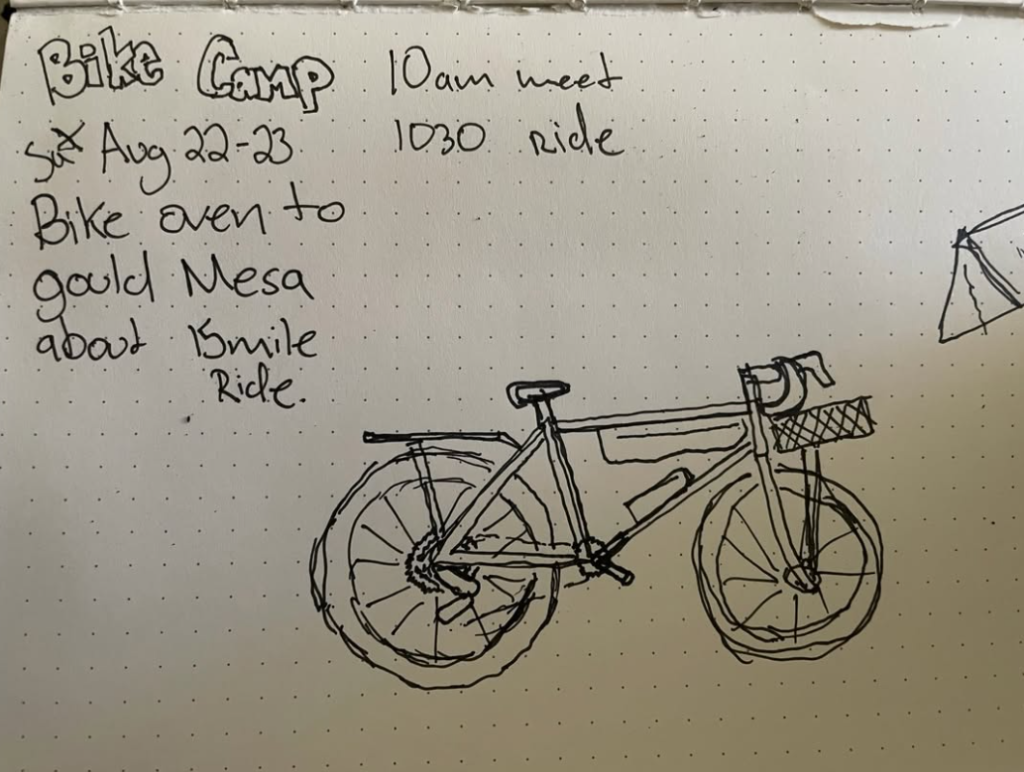 Bike Camp
10am meet
Sat Aug 22-23
1030 ride
Bike oven to
gould Mesa
about 15mile
Ride.